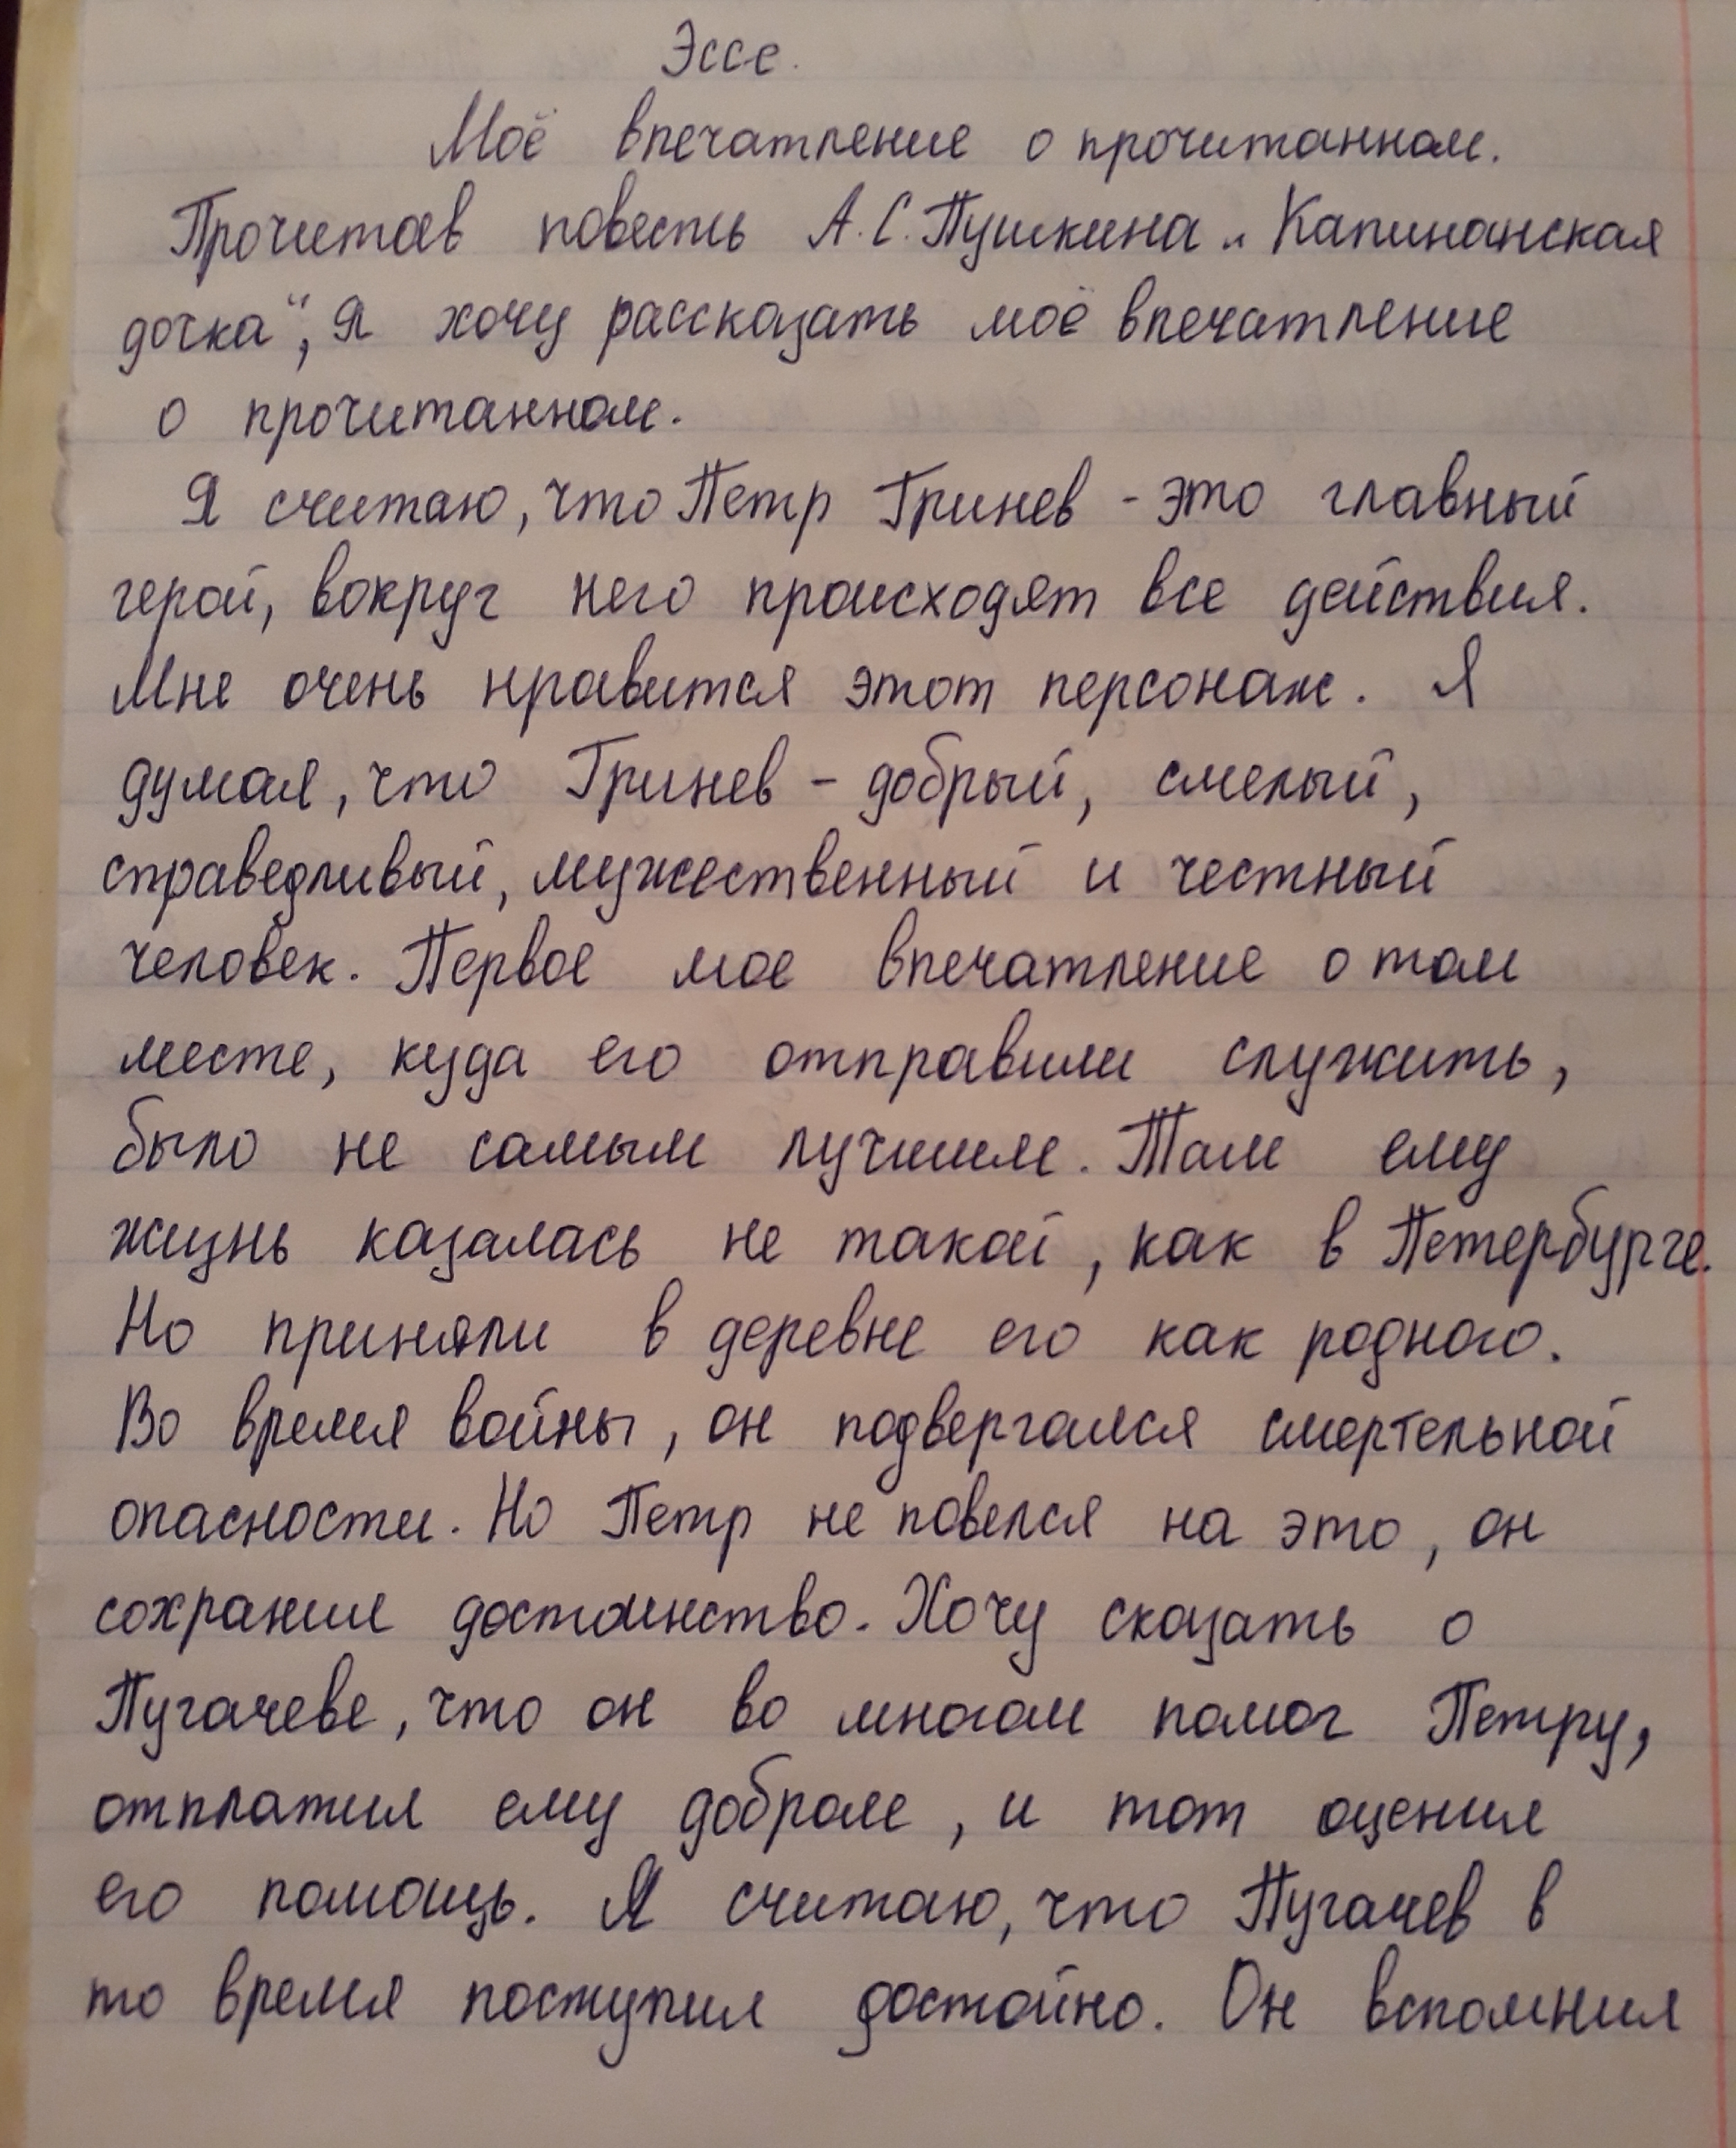 Эссе.
Моё впечатление о прочитанном.
Прочитав повесть А.С. Пушкина „Капинанская
дочка“, Я хочу рассказать моё впечатление
о прочитанном.
Я считаю, что Петр Гринев - это главный
герой, вокруг него происходят все действия.
Мне очень нравится этот персонаж. Я
думая, что Гринев - добрый, смелый,
справедливый, мужественный и честный
человек. Первое мое впечатление о том
месте, куда его отправили служить,
было не самым лучшим. Там ему
жизнь казалась не такой, как в Петербурге.
Но приняли в деревне его как родного.
Во время войны, он подвергался смертельной
опасности. Но Петр не повелся на это, он
сохранил достоинство. Хочу сказать о
Пугачеве, что он во многом помог Петру,
отплатил ему добром, и тот оценил
его помощь. Я считаю, что Пугачев в
то время поступил достойно. Он вспомнил